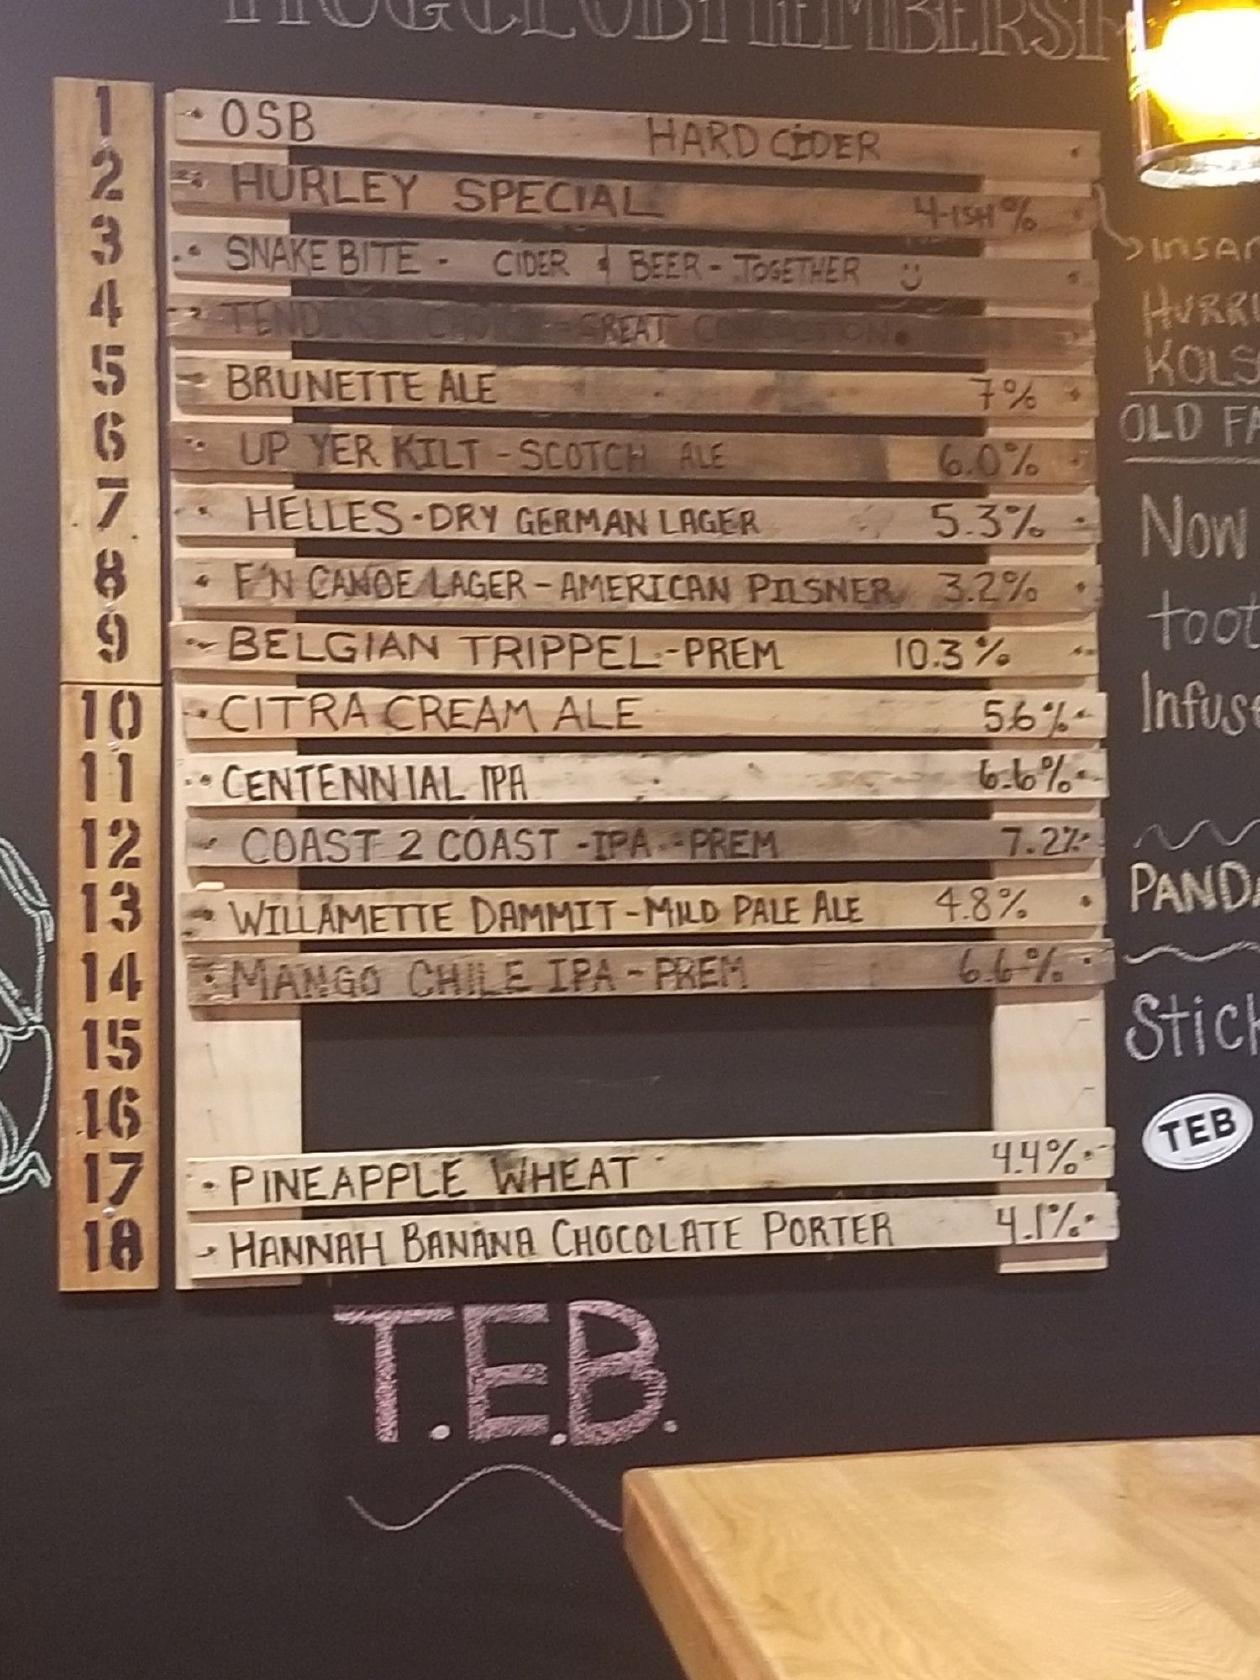 1 OSB HARD CIDER
2 HURLEY SPECIAL 4-ISH%
3 SNAKE BITE - CIDER & BEER - TOGETHER
4 TENDERS GREAT
5 BRUNETTE ALE 7%
6 UP YER KILT - SCOTCH ALE 6.0%
7 HELLES - DRY GERMAN LAGER 5.3%
8 F'N CANOE LAGER - AMERICAN PILSNER 3.2%
9 BELGIAN TRIPPEL - PREM 10.3%
10 CITRA CREAM ALE 5.6%
11 CENTENNIAL IPA 6.6%
12 COAST 2 COAST - IPA - PREM 7.2%
13 WILLAMETTE DAMMIT - MILD PALE ALE 4.8%
14 MANGO CHILE IPA - PREM 6.6%
15
16
17 PINEAPPLE WHEAT 4.4%
18 HANNAH BANANA CHOCOLATE PORTER 4.1%
T.E.B.
INSAN
HURRI
KOLS
OLD FA
NOW
toot
Infuse
PANDA
Stick
TEB